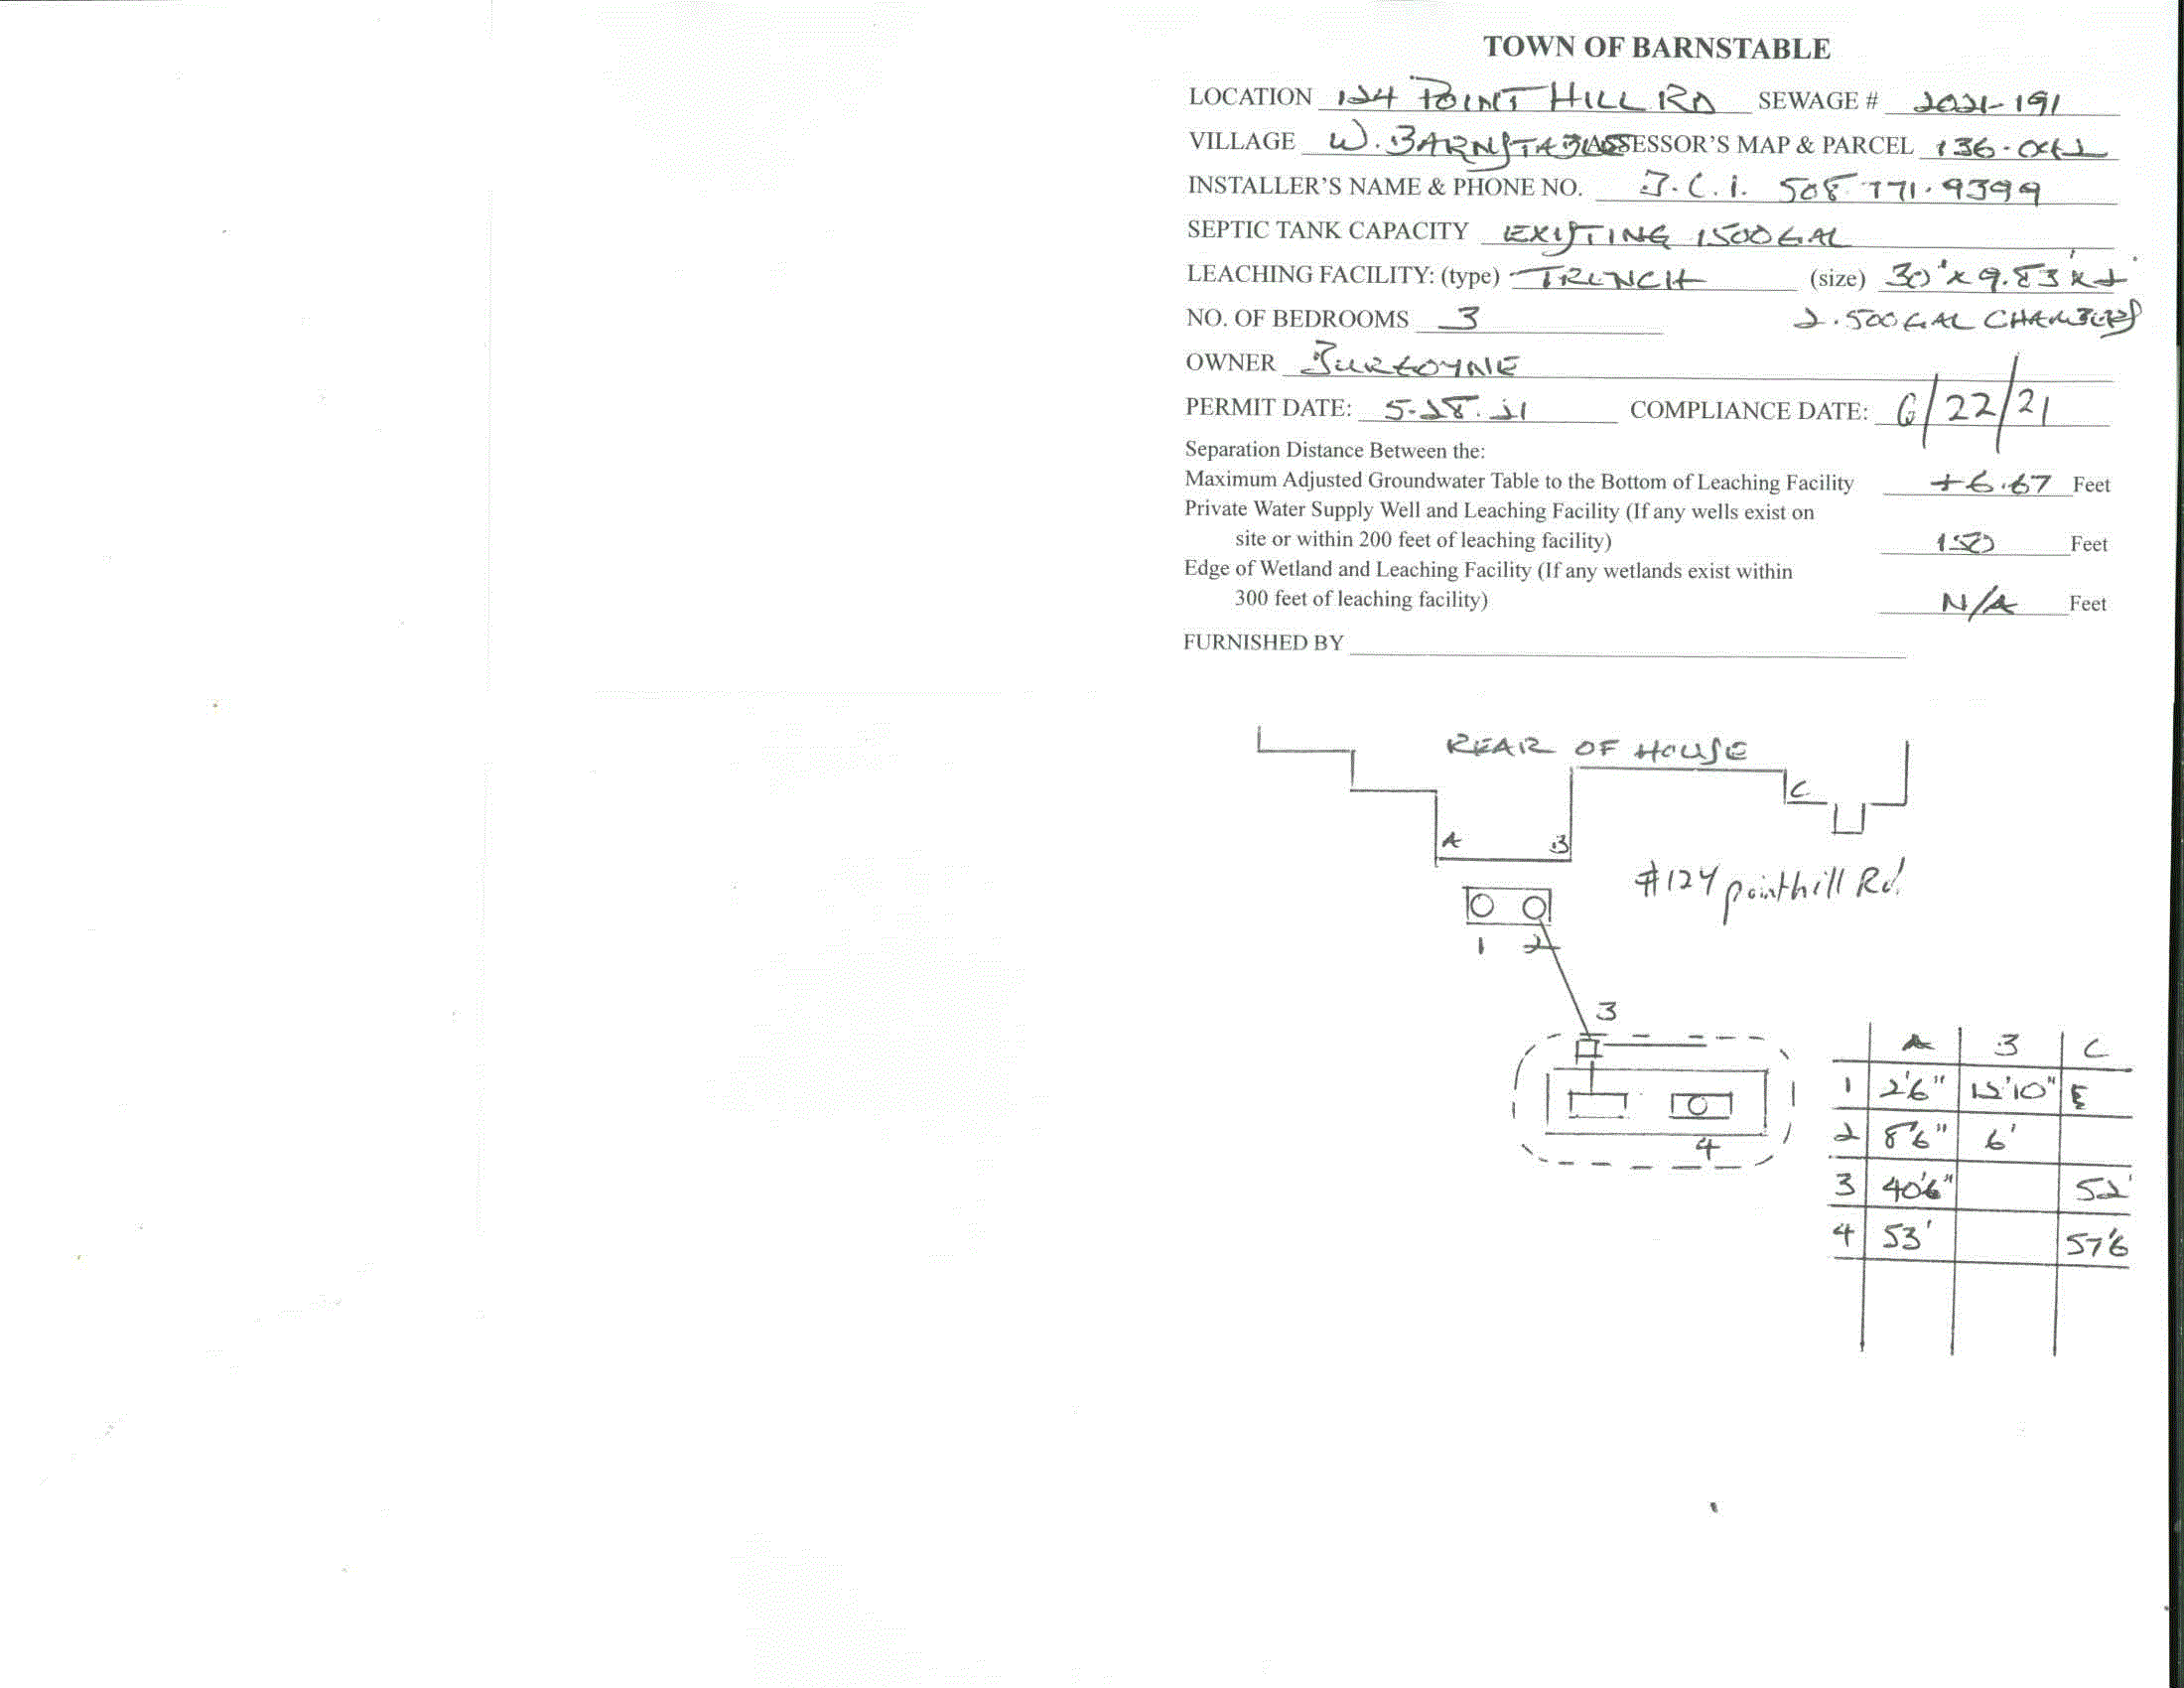 TOWN OF BARNSTABLE
LOCATION 124 POINT HILL RD SEWAGE # 2021-191
VILLAGE W. BARNSTABLE ASSESSOR'S MAP & PARCEL 136-
INSTALLER'S NAME & PHONE NO. J.C.I. 508.771.9399
SEPTIC TANK CAPACITY EXISTING 1500 GAL
LEACHING FACILITY: (type) TRENCH (size) 30' x 9.83' x 2'
NO. OF BEDROOMS 3 2-500 GAL CHAMBERS
OWNER BURGOYNE
PERMIT DATE: 5-28-21 COMPLIANCE DATE: 6/22/21
Separation Distance Between the:
Maximum Adjusted Groundwater Table to the Bottom of Leaching Facility +6.67 Feet
Private Water Supply Well and Leaching Facility (If any wells exist on
site or within 200 feet of leaching facility) 150 Feet
Edge of Wetland and Leaching Facility (If any wetlands exist within
300 feet of leaching facility) N/A Feet
FURNISHED BY
REAR OF HOUSE
C
A B
#124 pointhill Rd.
1 2
3
4
A B C
1 2'6" 12'10"
2 8'6" 6'
3 40'6" 52'
4 53' 57'6